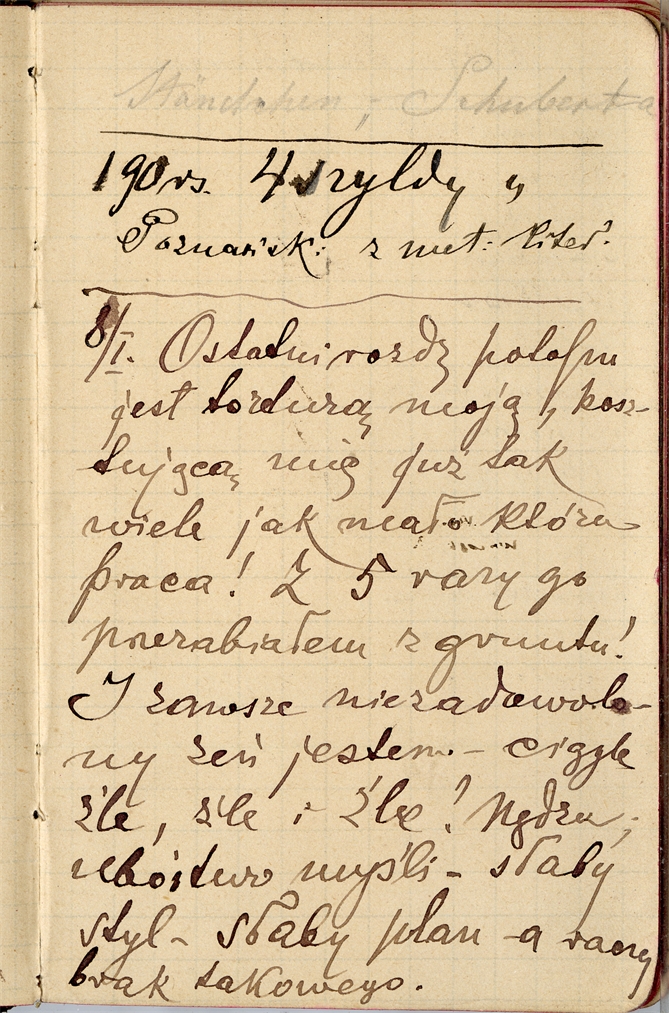 Ständchen, Schuberta
190 rs. 4 szyldy „
Poznańsk: z met: liter.
8/I. Ostatni rozdz potopu
jest torturą moją, kosz-
tującą mię już tak
wiele jak mało która
praca! Z 5 razy go
przerabiałem z gruntu!
I zawsze niezadowolo-
ny zeń jestem – ciągle
źle, źle i źle! Nędza,
ubóstwo myśli – słaby
styl – słaby plan – a raczej
brak takowego.